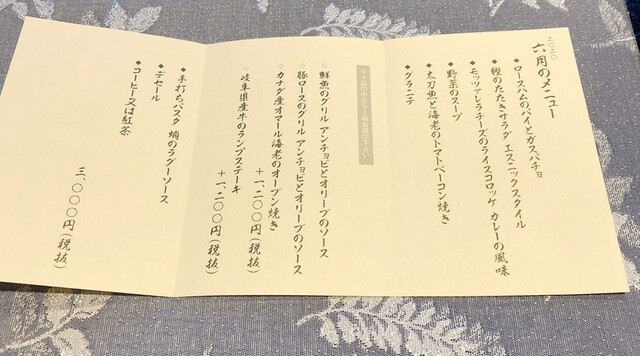 二〇二〇
六月のメニュー
◆ロースハムのパイとガスパチョ
◆鰹のたたきサラダ エスニックスタイル
◆モッツァレラチーズのライスコロッケ カレーの風味
◆野菜のスープ
◆太刀魚と海老のトマトベーコン焼き
◆グラニテ
◇鮮魚のグリル アンチョビとオリーブのソース
◇豚ロースのグリル アンチョビとオリーブのソース
◇カナダ産オマール海老のオーブン焼き
+一、二〇〇円(税抜)
◇岐阜県産牛のランプステーキ
+一、二〇〇円(税抜)
◆手打ちパスタ 蛸のラグーソース
◆デセール
◆コーヒー又は紅茶
三、〇〇〇円(税抜)